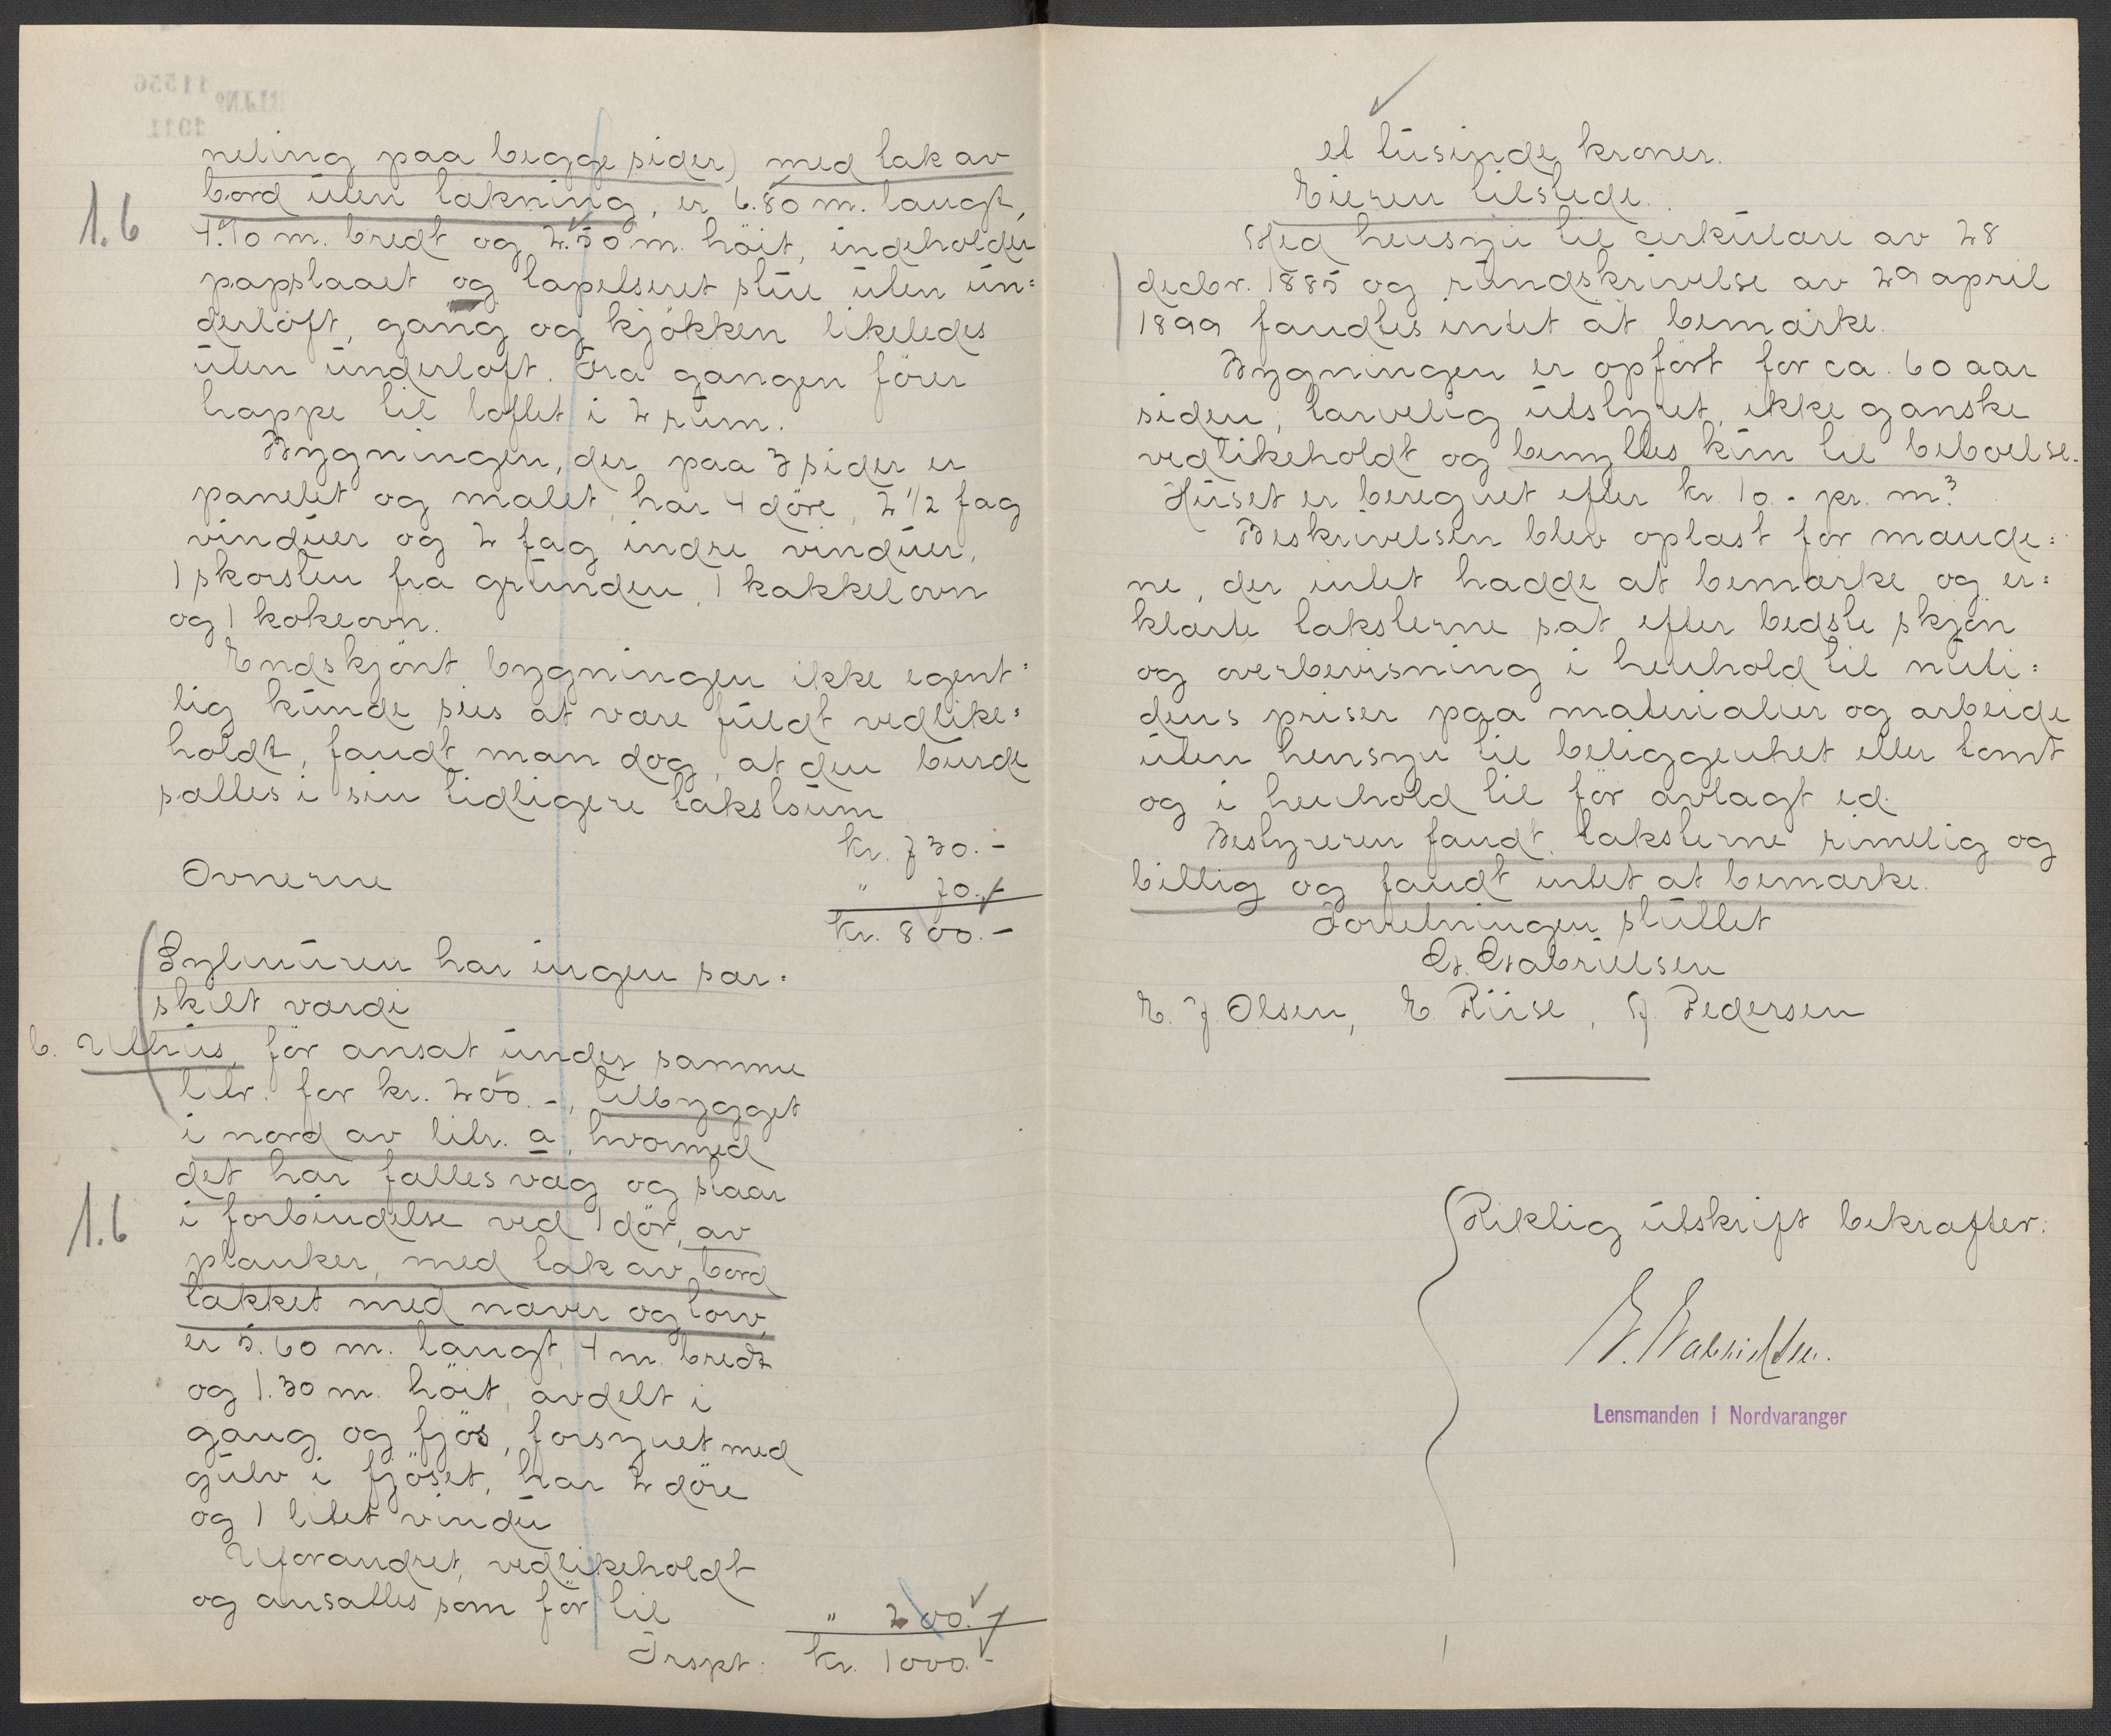 neling paa begge sider) med tak av
bord uten tækning, er 6.80 m. langt,
4.70 m. bredt og 2.50 m. höit, indeholder
papslaaet og tapetseret stue uten un=
derloft, gang og kjökken likeledes
uten underloft. Fra gangen förer
trappe til loftet i 2 rum.
Bygningen, der paa 3 sider er
panelet og malet, har 4 döre, 2 1/2 fag
vinduer og 2 fag indre vinduer,
1 skorsten fra grunden, 1 kakkelovn
og 1 kokeovn.
Endskjönt bygningen ikke egent=
lig kunde sies at være fuldt vedlike=
holdt, fandt man dog, at den burde
sættes i sin tidligere takstsum
kr. 730.-
Ovnerne " 70.-
kr. 800.-
Sylmuren har ingen sær=
skilt værdi
b. Uthus, för ansat under samme
litr. for kr. 200.-, tilbygget
i nord av litr. a, hvormed
det har fælles væg og staar
i forbindelse ved 1 dör, av
planker, med tak av bord
tækket med næver og torv,
er 5.60 m. langt, 4 m. bredt
og 1.30 m. höit, avdelt i
gang og fjös, forsynet med
gulv i fjöset, har 2 döre
og 1 litet vindu
Uforandret, vedlikeholdt
og ansættes som för til " 200.-
Trspt. kr. 1000.-
1.6
1.6
et tusinde kroner.
Eieren tilstede.
Med hensyn til cirkulære av 28
decbr. 1885 og rundskrivelse av 29 april
1899 fandtes intet at bemærke.
Bygningen er opfört for ca. 60 aar
siden, tarvelig utstyret, ikke ganske
vedlikeholdt og benyttes kun til beboelse.
Huset er beregnet efter kr. 10.- pr. m³
Beskrivelsen blev oplæst for mænde=
ne, der intet hadde at bemærke og er=
klærte taksterne sat efter bedste skjön
og overbevisning i henhold til nuti=
dens priser paa materialier og arbeide
uten hensyn til beliggenhet eller tomt
og i henhold til för avlagt ed.
Bestyreren fandt taksterne rimelig og
billig og fandt intet at bemærke.
Forretningen sluttet
G. Gabrielsen
E. J. Olsen, E. Riise, J. Pedersen
Riktig utskrift bekræfter:
G. Gabrielsen.
Lensmanden i Nordvaranger